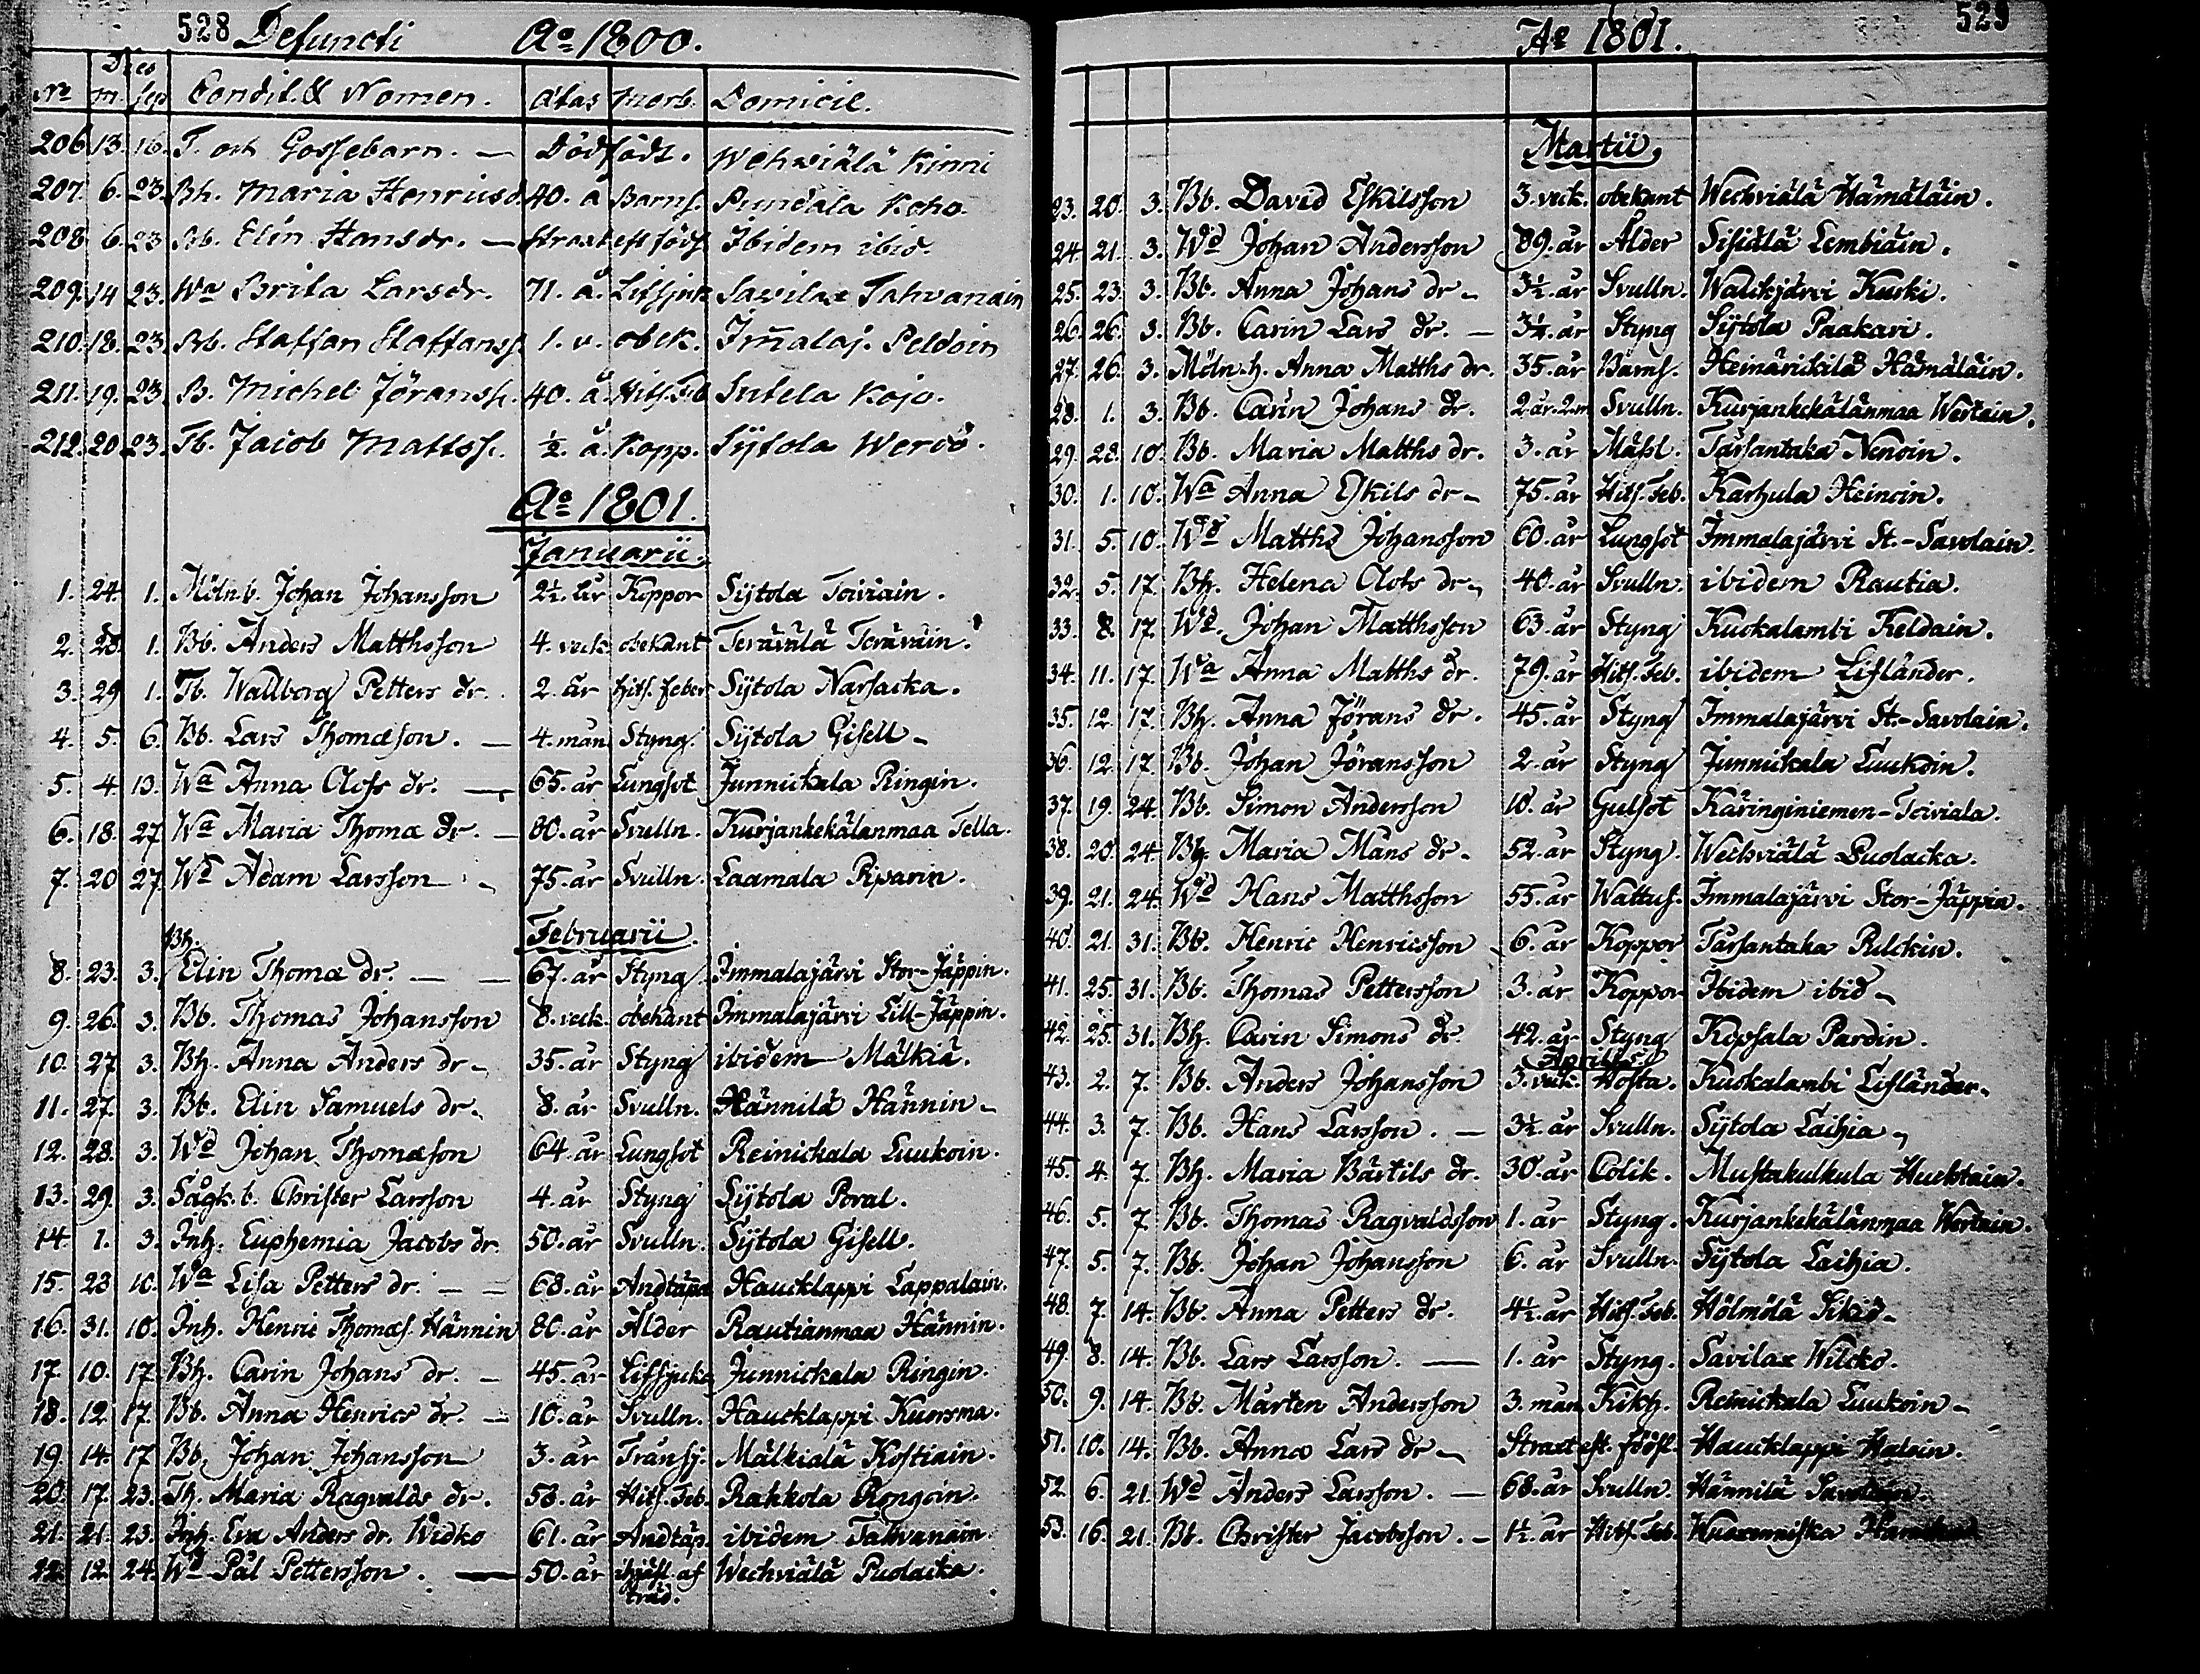 528 Defuncti Ao 1800.
Dies
No m. sep Condit. & Nomen. Ætas Morb. Domicil.
206 13. 16. T. och Gossebarn. — Dödfödt. Wehwiälä Kinni
207. 6. 23. Bh. Maria Henricsd. 40. å Barns. Pundala Koho.
208 6. 23 Bb. Elin Hansdr. — strax eft födf Ibidem ibid.
209. 14 23. Wa Brita Larsdr. 71. å. Lifsjuk Savilax Tahvanain
210. 18. 23. Bb. Staffan Staffanss. 1. v. obek. Immalaj. Peldoin
211. 19. 23. B. Michel Jöranss. 40. å. Hits. Feb Sutela Kojo.
212. 20. 23. Tb. Jacob Mattss. ½. å. Kopp. Sÿtola Wervo.
Ao 1801.
Januarii.
1. 24. 1. Möln.b. Johan Johansson 2½. år Koppor Sÿtola Toiviain.
2. 28. 1. Bb. Anders Matthsson 4. veck obekant Terävälä Teräväin.
3. 29 1. Tb. Wallborg Petters dr. 2. år hits. feber Sÿtola Narsacka.
4. 5. 6. Bb. Lars Thomæson. — 4. mån Styng. Sÿtola Gisell –
5. 4. 13. Wa Anna Olofs dr. — 65. år Lungsot Junnickala Ringin.
6. 18. 27 Wa Maria Thomæ dr. – 80. år Svulln. Kurjankekälänmaa Tella.
7. 20 27. Wd Adam Larsson – 75. år Svulln. Laamala Riparin.
Februarii.
8. 23. 3. Bh. Elin Thomæ dr. — — 67. år Styng Immalajärvi Stor-Jäppin.
9. 26. 3. Bb. Thomas Johansson 8. veck. obekant Immalajärvi Lill-Jäppin.
10. 27 3. Bh. Anna Anders dr – 35. år Styng ibidem Mälkiä.
11. 27. 3. Bb. Elin Samuels dr. 8. år Svulln. Hännilä Hännin –
12. 28. 3. Wd Johan Thomæson 64. år Lungsot Reinickala Luukoin.
13. 29. 3. Sågk.b. Christer Larsson 4. år Styng Sÿtola Poral.
14. 1. 3. Inh. Euphemia Jacobs dr. 50. år Svulln. Sÿtola Gisell.
15. 23 10. Wa Lisa Petters dr. — — 68. år Andtäpa Haucklappi Lappalain.
16. 31. 10. Inh. Henric Thomæs. Hännin 80. år Ålder Rautianmaa Hännin.
17. 10. 17. Bh. Carin Johans dr. — 45. år Lifsjuka Junnickala Ringin.
18. 12. 17. Bb. Anna Henrics dr. — 10. år Svulln. Haucklappi Kuorsma.
19. 14. 17 Bb. Johan Johansson 3. år Transj. Mälkiälä Kostiain.
20. 17. 23. Th. Maria Ragvalds dr. 58. år Hits. Feb. Rakkola Rongoin.
21. 21 23. Inh. Eva Anders dr. Widko 61. år Andtäp. ibidem Tahvanain
22. 12. 24. Wd Pål Pettersson. — 50. år ihjäsl. af träd. Wechviälä Puolacka.
529
Ao 1801.
Martii.
23. 20. 3. Bb. David Eskilsson 3. veck. obekant Wechviälä Hämäläin.
24. 21. 3. Wd Johan Andersson 89. år Ålder Sisiälä Lembiäin.
25. 23. 3. Bb. Anna Johans dr – 3½. år Svulln. Walckjärvi Kurki.
26. 26. 3. Bb. Carin Lars dr. — 3¼. år Styng Sÿtola Paakari.
27. 26. 3. Möln.h. Anna Matths dr. 35. år Barns. Heinärickilä Hämäläin.
28. 1. 3. Bb. Carin Johans dr. 2. år. 2.m Svulln. Kurjankekälänmaa Wertain.
29. 28. 10. Bb. Maria Matths dr. 3. år Mässl. Tarsantaka Nenoin.
30. 1. 10. Wa Anna Eskils dr – 75. år Hits. Feb. Karhula Heinoin.
31. 5. 10. Wd Matths Johansson 60. år Lungsot Immalajärvi St.-Savolain.
32. 5. 17. Bh. Helena Olofs dr – 40. år Svulln. ibidem Rautia.
33. 8. 17. Wd. Johan Matthsson 63. år Styng Kuokalambi Keldain.
34. 11. 17. Wa Anna Matths dr. 79. år Hits. Feb. ibidem Lifländer.
35. 12. 17. Bh. Anna Jörans dr. 45. år Styng Immalajärvi St.-Savolain.
36. 12. 17. Bb. Johan Jöransson 2. år Styng Junnickala Luukoin.
37. 19. 24. Bb. Simon Andersson 10. år Gulsot Käringiniemen-Toiviala.
38. 20 24. Bh. Maria Måns dr – 52. år Styng. Wechviälä Puolacka.
39. 21. 24. Wd Hans Matthsson 55. år Wattus. Immalajärvi Stor-Jäppin.
40. 21. 31. Bb. Henric Henricsson 6. år Koppor Tarsantaka Pulckin.
41. 25. 31. Bb. Thomas Pettersson 3. år Koppor Ibidem ibid –
42. 25. 31. Bh. Carin Simons dr. 42. år Styng Kopsala Pardin.
Aprilis.
43. 2. 7. Bb. Anders Johansson 3. veck. Hosta. Kuokalambi Lifländer –
44. 3. 7. Bb. Hans Larsson. — 3½. år Svulln. Sÿtola Laihia –
45. 4. 7. Bh. Maria Bärtils dr. 30. år Colik. Mustakulkula Huchtain.
46. 5. 7 Bb. Thomas Ragvaldsson 1. år Styng. Kurjankekälänmaa Wertain.
47. 5. 7. Bb. Johan Johansson 6. år Svulln. Sÿtola Laihia.
48. 7. 14. Bb. Anna Petters dr. 4½. år Hits. Feb. Hölmölä Sikiö –
49. 8. 14. Bb. Lars Larsson. — 1. år Styng. Savilax Wilcko.
50. 9. 14. Bb. Mårten Andersson 3. mån Kikh. Reinickala Luukoin –
51. 10. 14. Bb. Anna Lars dr – Straxt eft. födsl. Haucklappi Halain.
52. 6. 21. Wd Anders Larsson. — 68. år Svulln. Hännilä
53. 16. 21. Bb. Christer Jacobsson. – 1½. år Hits. Feb. Wuoxenniska